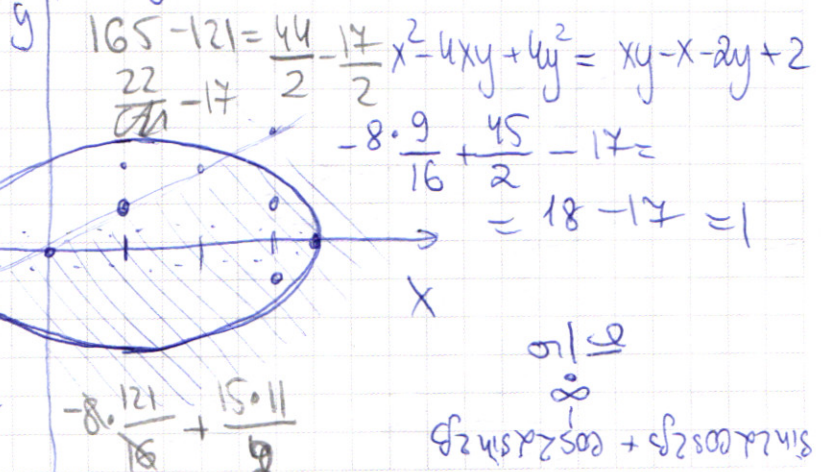 y
165 - 121 = 44/2 - 17/2
22/ - 17
x² - 4xy + 4y² = xy - x - 2y + 2
-8 · 9/16 + 45/2 - 17 =
= 18 - 17 = 1
X
-8 · 121/16 + 15·11/
sin2αcos2β + cos2αsin2β
∞